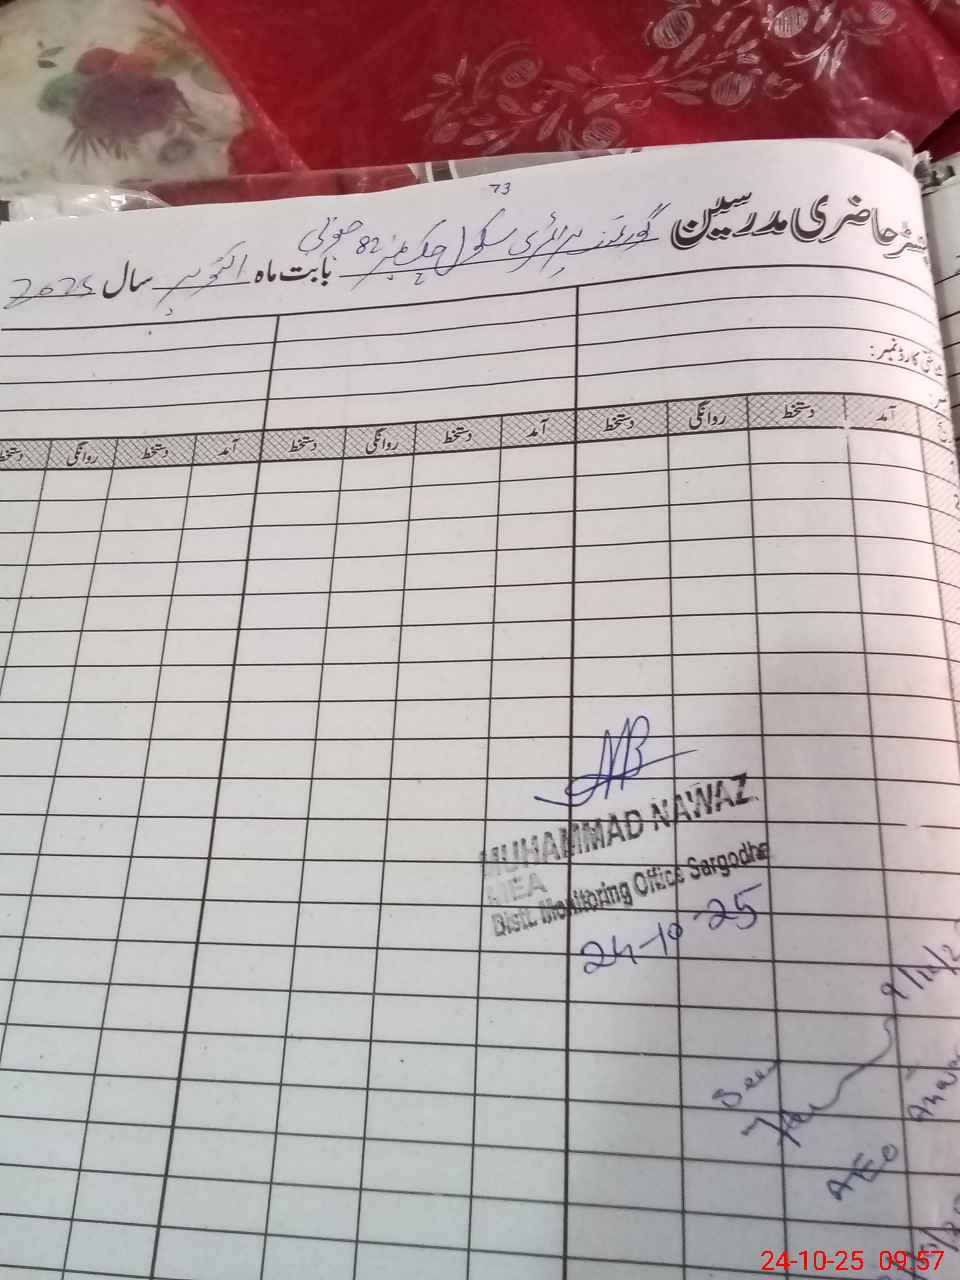 73
رجسٹر حاضری مدرسین گورنمنٹ پرائمری سکول چک نمبر 82 جنوبی
بابت ماہ اکتوبر سال 2025
شناختی کارڈ نمبر:
آمد دستخط روانگی دستخط آمد دستخط روانگی دستخط آمد دستخط روانگی دستخط
MUHAMMAD NAWAZ
MEA
Distt. Monitoring Office Sargodha
24-10-25
Seen
AEO
24-10-25 09:57